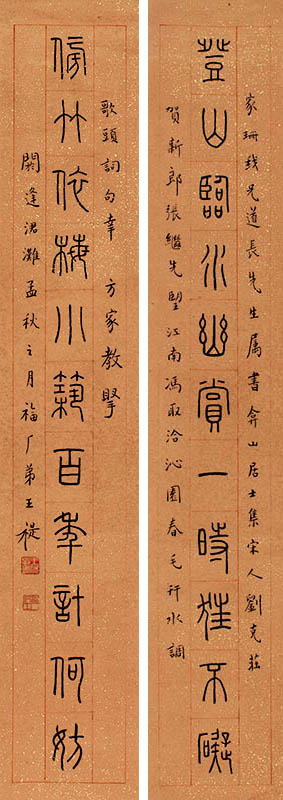 家珊兄道長先生属書弇山居士集宋人劉克莊
登山臨水幽賞一時狂不礙
賀新郎張繼先朢江南馮取洽沁園春毛幵水調
歌頭詞句幸 方家教
傍竹依梅小築百年計何妨
閼逢涒灘孟秋之月福厂弟王禔